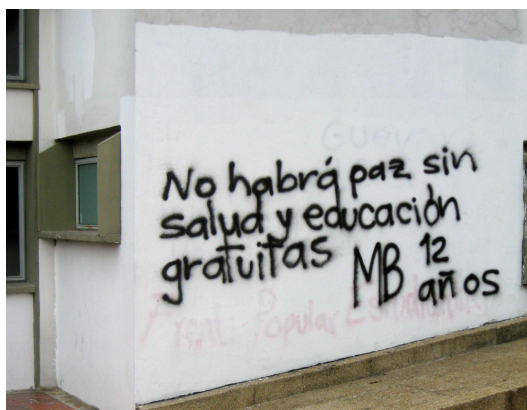 Guevar
No habrá paz sin
salud y educación
gratuitas MB 12
años
Frente Popular